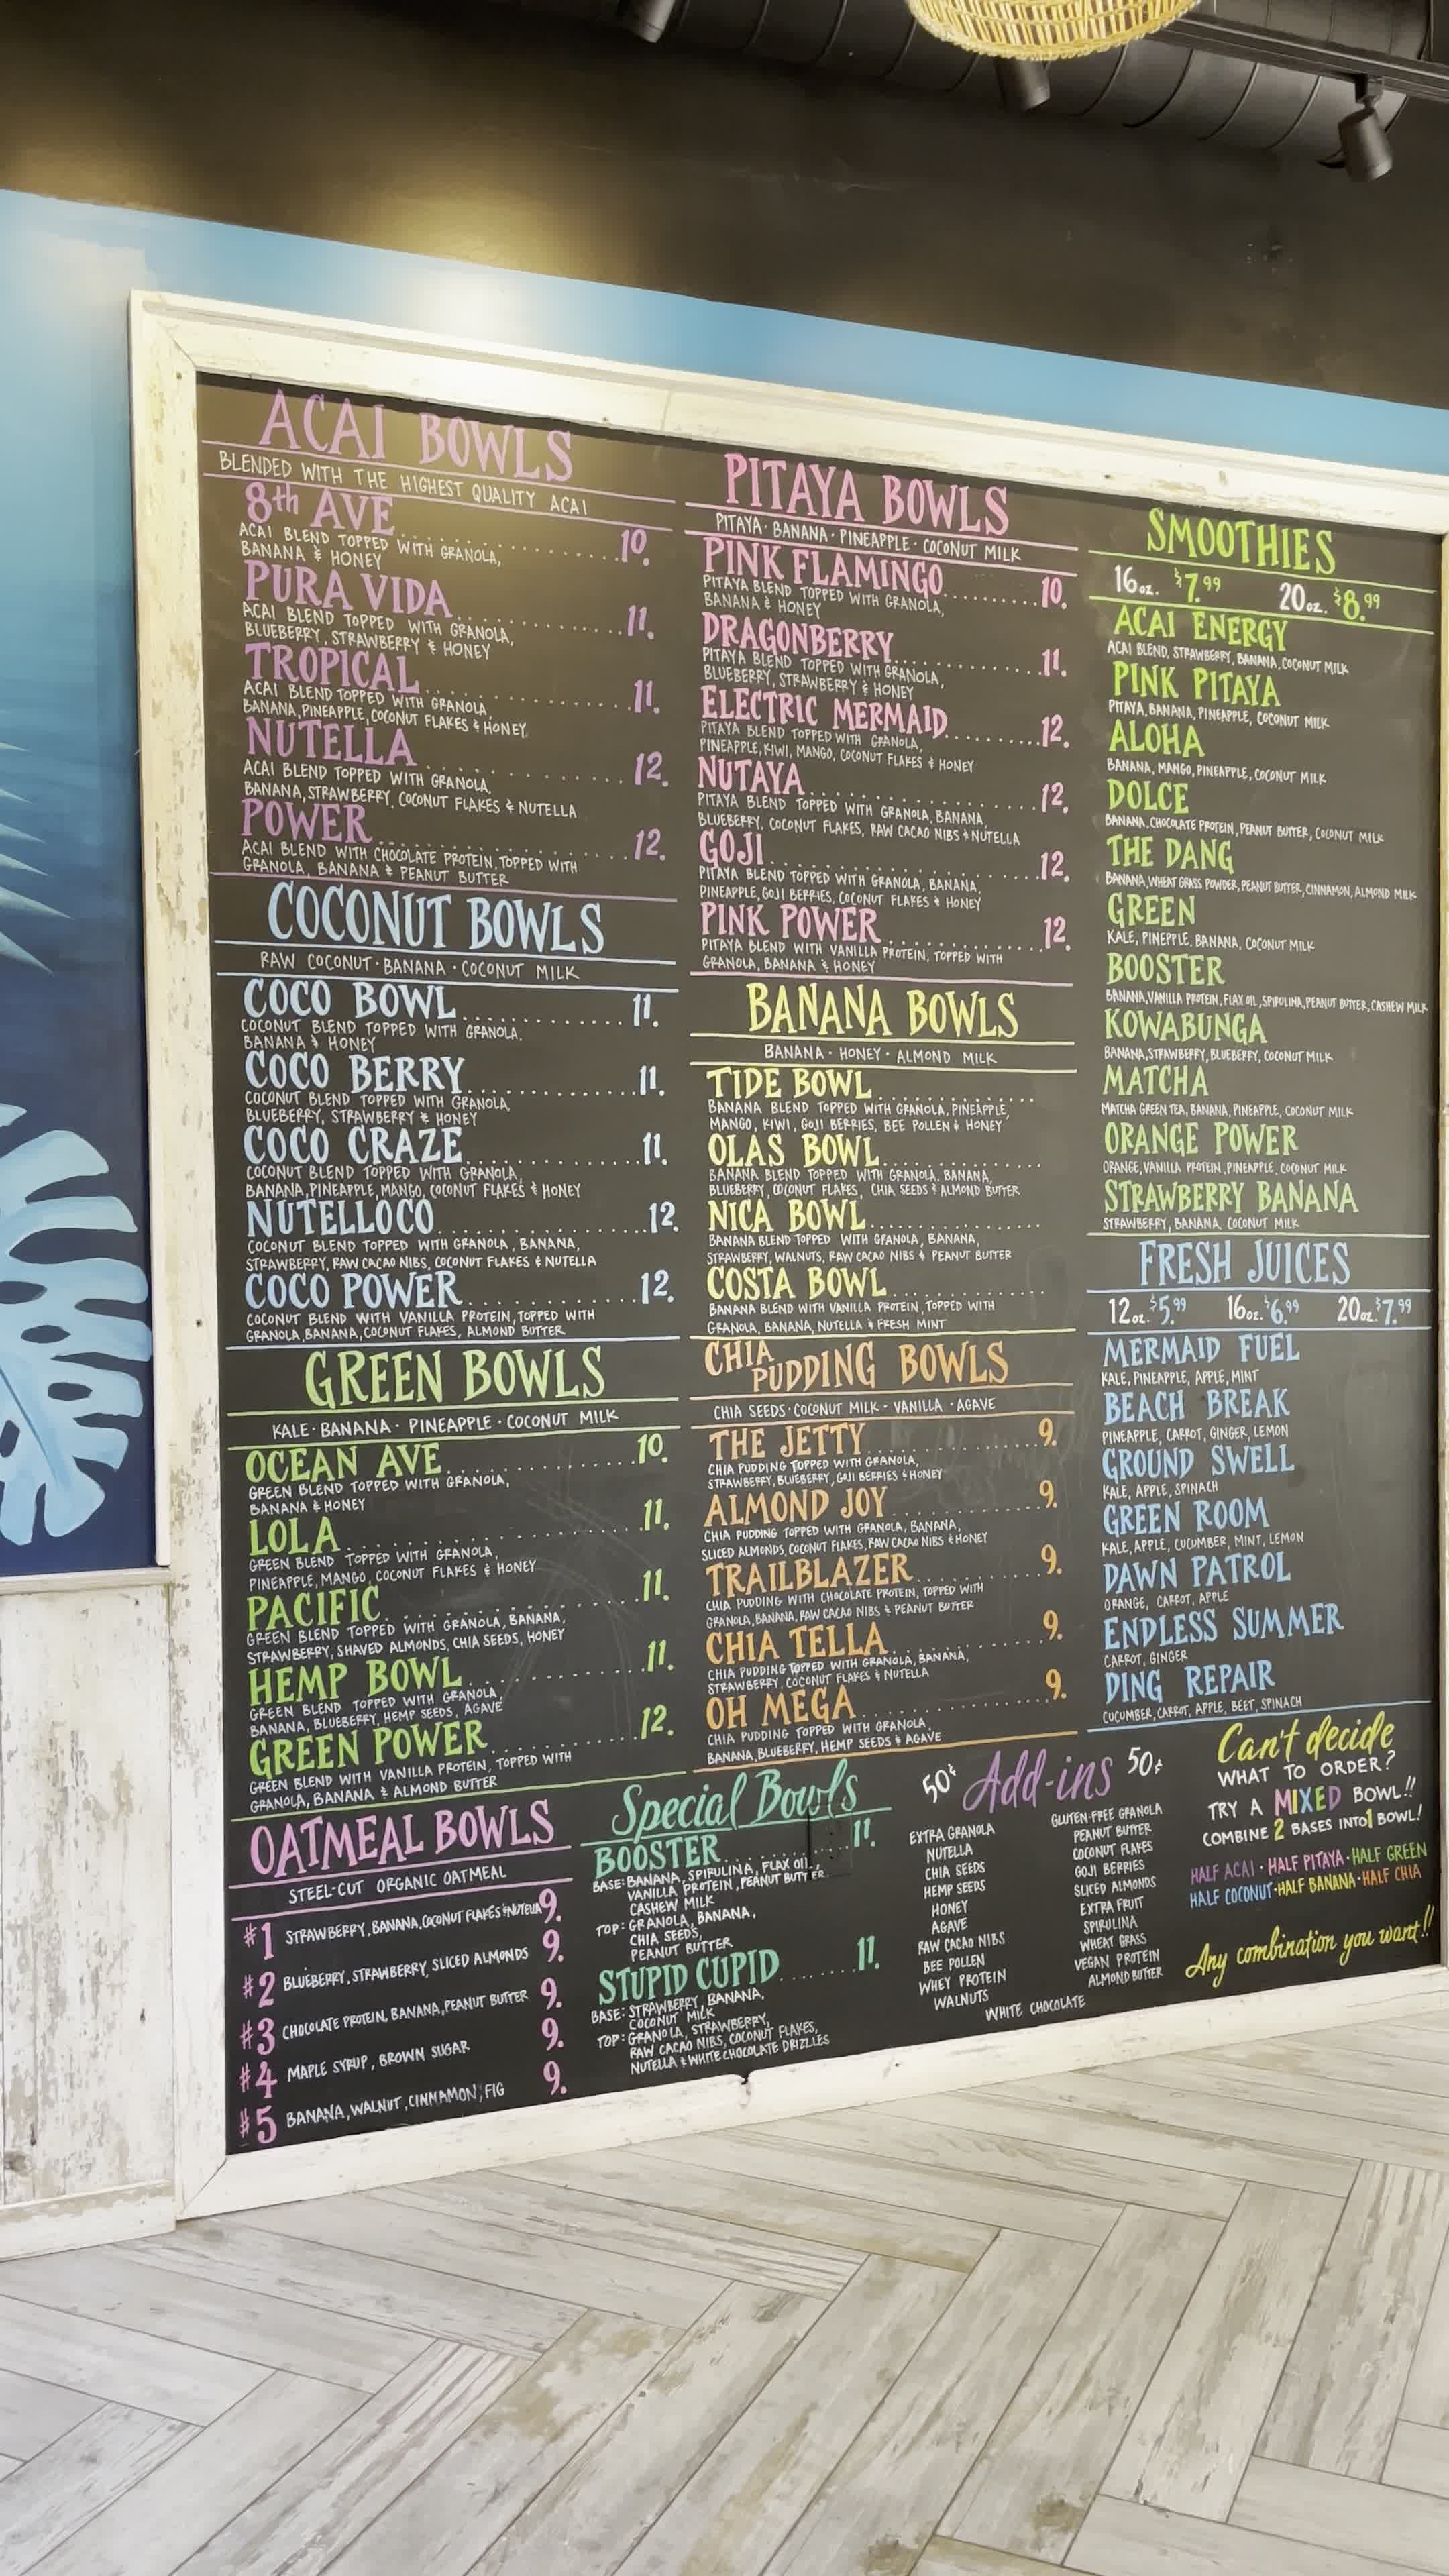 ACAI BOWLS
BLENDED WITH THE HIGHEST QUALITY ACAI
8th AVE..............10.
ACAI BLEND TOPPED WITH GRANOLA,
BANANA & HONEY
PURA VIDA..............11.
ACAI BLEND TOPPED WITH GRANOLA,
BLUEBERRY, STRAWBERRY & HONEY
TROPICAL..............11.
ACAI BLEND TOPPED WITH GRANOLA
BANANA, PINEAPPLE, COCONUT FLAKES & HONEY
NUTELLA..............12.
ACAI BLEND TOPPED WITH GRANOLA,
BANANA, STRAWBERRY, COCONUT FLAKES & NUTELLA
POWER..............12.
ACAI BLEND WITH CHOCOLATE PROTEIN, TOPPED WITH
GRANOLA, BANANA & PEANUT BUTTER
COCONUT BOWLS
RAW COCONUT · BANANA · COCONUT MILK
COCO BOWL..............11.
COCONUT BLEND TOPPED WITH GRANOLA,
BANANA & HONEY
COCO BERRY..............11.
COCONUT BLEND TOPPED WITH GRANOLA,
BLUEBERRY, STRAWBERRY & HONEY
COCO CRAZE..............11.
COCONUT BLEND TOPPED WITH GRANOLA,
BANANA, PINEAPPLE, MANGO, COCONUT FLAKES & HONEY
NUTELLOCO..............12.
COCONUT BLEND TOPPED WITH GRANOLA, BANANA,
STRAWBERRY, RAW CACAO NIBS, COCONUT FLAKES & NUTELLA
COCO POWER..............12.
COCONUT BLEND WITH VANILLA PROTEIN, TOPPED WITH
GRANOLA, BANANA, COCONUT FLAKES, ALMOND BUTTER
GREEN BOWLS
KALE · BANANA · PINEAPPLE · COCONUT MILK
OCEAN AVE..............10.
GREEN BLEND TOPPED WITH GRANOLA,
BANANA & HONEY
LOLA..............11.
GREEN BLEND TOPPED WITH GRANOLA,
PINEAPPLE, MANGO, COCONUT FLAKES & HONEY
PACIFIC..............11.
GREEN BLEND TOPPED WITH GRANOLA, BANANA,
STRAWBERRY, SHAVED ALMONDS, CHIA SEEDS, HONEY
HEMP BOWL..............11.
GREEN BLEND TOPPED WITH GRANOLA,
BANANA, BLUEBERRY, HEMP SEEDS, AGAVE
GREEN POWER..............12.
GREEN BLEND WITH VANILLA PROTEIN, TOPPED WITH
GRANOLA, BANANA & ALMOND BUTTER
OATMEAL BOWLS
STEEL-CUT ORGANIC OATMEAL
#1 STRAWBERRY, BANANA, COCONUT FLAKES & NUTELLA 9.
#2 BLUEBERRY, STRAWBERRY, SLICED ALMONDS 9.
#3 CHOCOLATE PROTEIN, BANANA, PEANUT BUTTER 9.
#4 MAPLE SYRUP, BROWN SUGAR 9.
#5 BANANA, WALNUT, CINNAMON, FIG 9.
PITAYA BOWLS
PITAYA · BANANA · PINEAPPLE · COCONUT MILK
PINK FLAMINGO..........10.
PITAYA BLEND TOPPED WITH GRANOLA,
BANANA & HONEY
DRAGONBERRY..............11.
PITAYA BLEND TOPPED WITH GRANOLA,
BLUEBERRY, STRAWBERRY & HONEY
ELECTRIC MERMAID..........12.
PITAYA BLEND TOPPED WITH GRANOLA,
PINEAPPLE, KIWI, MANGO, COCONUT FLAKES & HONEY
NUTAYA..............12.
PITAYA BLEND TOPPED WITH GRANOLA, BANANA,
BLUEBERRY, COCONUT FLAKES, RAW CACAO NIBS & NUTELLA
GOJI..............12.
PITAYA BLEND TOPPED WITH GRANOLA, BANANA,
PINEAPPLE, GOJI BERRIES, COCONUT FLAKES & HONEY
PINK POWER..............12.
PITAYA BLEND WITH VANILLA PROTEIN, TOPPED WITH
GRANOLA, BANANA & HONEY
BANANA BOWLS
BANANA · HONEY · ALMOND MILK
TIDE BOWL..............
BANANA BLEND TOPPED WITH GRANOLA, PINEAPPLE,
MANGO, KIWI, GOJI BERRIES, BEE POLLEN & HONEY
OLAS BOWL..............
BANANA BLEND TOPPED WITH GRANOLA, BANANA,
BLUEBERRY, COCONUT FLAKES, CHIA SEEDS & ALMOND BUTTER
NICA BOWL..............
BANANA BLEND TOPPED WITH GRANOLA, BANANA,
STRAWBERRY, WALNUTS, RAW CACAO NIBS & PEANUT BUTTER
COSTA BOWL..............
BANANA BLEND WITH VANILLA PROTEIN, TOPPED WITH
GRANOLA, BANANA, NUTELLA & FRESH MINT
CHIA PUDDING BOWLS
CHIA SEEDS · COCONUT MILK · VANILLA · AGAVE
THE JETTY..............9.
CHIA PUDDING TOPPED WITH GRANOLA,
STRAWBERRY, BLUEBERRY, GOJI BERRIES & HONEY
ALMOND JOY..............9.
CHIA PUDDING TOPPED WITH GRANOLA, BANANA,
SLICED ALMONDS, COCONUT FLAKES, RAW CACAO NIBS & HONEY
TRAILBLAZER..............9.
CHIA PUDDING WITH CHOCOLATE PROTEIN, TOPPED WITH
GRANOLA, BANANA, RAW CACAO NIBS & PEANUT BUTTER
CHIA TELLA..............9.
CHIA PUDDING TOPPED WITH GRANOLA, BANANA,
STRAWBERRY, COCONUT FLAKES & NUTELLA
OH MEGA..............9.
CHIA PUDDING TOPPED WITH GRANOLA,
BANANA, BLUEBERRY, HEMP SEEDS & AGAVE
Special Bowls
BOOSTER..............11.
BASE: BANANA, SPIRULINA, FLAX OIL,
VANILLA PROTEIN, PEANUT BUTTER
CASHEW MILK
TOP: GRANOLA, BANANA,
CHIA SEEDS,
PEANUT BUTTER
STUPID CUPID.......11.
BASE: STRAWBERRY, BANANA,
COCONUT MILK
TOP: GRANOLA, STRAWBERRY,
RAW CACAO NIBS, COCONUT FLAKES,
NUTELLA & WHITE CHOCOLATE DRIZZLES
50¢ Add-ins 50¢
EXTRA GRANOLA
NUTELLA
CHIA SEEDS
HEMP SEEDS
HONEY
AGAVE
RAW CACAO NIBS
BEE POLLEN
WHEY PROTEIN
WALNUTS
GLUTEN-FREE GRANOLA
PEANUT BUTTER
COCONUT FLAKES
GOJI BERRIES
SLICED ALMONDS
EXTRA FRUIT
SPIRULINA
WHEAT GRASS
VEGAN PROTEIN
ALMOND BUTTER
WHITE CHOCOLATE
SMOOTHIES
16oz. $7.99 20oz. $8.99
ACAI ENERGY
ACAI BLEND, STRAWBERRY, BANANA, COCONUT MILK
PINK PITAYA
PITAYA, BANANA, PINEAPPLE, COCONUT MILK
ALOHA
BANANA, MANGO, PINEAPPLE, COCONUT MILK
DOLCE
BANANA, CHOCOLATE PROTEIN, PEANUT BUTTER, COCONUT MILK
THE DANG
BANANA, WHEAT GRASS POWDER, PEANUT BUTTER, CINNAMON, ALMOND MILK
GREEN
KALE, PINEPPLE, BANANA, COCONUT MILK
BOOSTER
BANANA, VANILLA PROTEIN, FLAX OIL, SPIRULINA, PEANUT BUTTER, CASHEW MILK
KOWABUNGA
BANANA, STRAWBERRY, BLUEBERRY, COCONUT MILK
MATCHA
MATCHA GREEN TEA, BANANA, PINEAPPLE, COCONUT MILK
ORANGE POWER
ORANGE, VANILLA PROTEIN, PINEAPPLE, COCONUT MILK
STRAWBERRY BANANA
STRAWBERRY, BANANA, COCONUT MILK
FRESH JUICES
12oz. $5.99 16oz. $6.99 20oz. $7.99
MERMAID FUEL
KALE, PINEAPPLE, APPLE, MINT
BEACH BREAK
PINEAPPLE, CARROT, GINGER, LEMON
GROUND SWELL
KALE, APPLE, SPINACH
GREEN ROOM
KALE, APPLE, CUCUMBER, MINT, LEMON
DAWN PATROL
ORANGE, CARROT, APPLE
ENDLESS SUMMER
CARROT, GINGER
DING REPAIR
CUCUMBER, CARROT, APPLE, BEET, SPINACH
Can't decide
WHAT TO ORDER?
TRY A MIXED BOWL!!
COMBINE 2 BASES INTO 1 BOWL!
HALF ACAI · HALF PITAYA · HALF GREEN
HALF COCONUT · HALF BANANA · HALF CHIA
Any combination you want!!